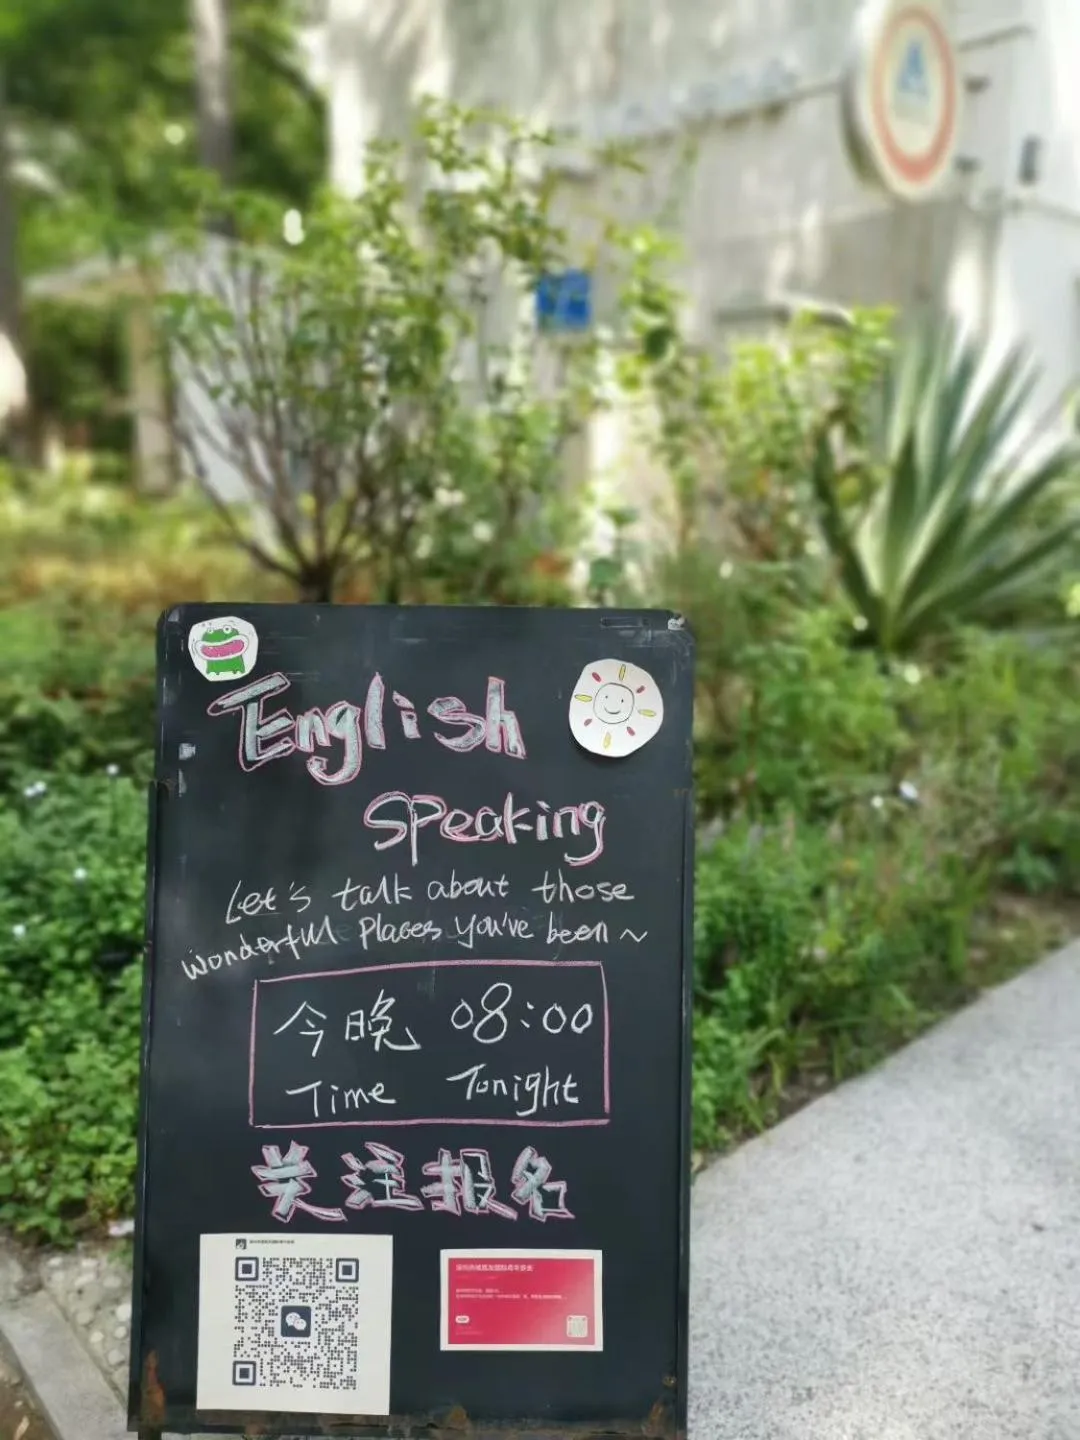 English
Speaking
Let's talk about those
wonderful Places you've been ~
今晚 08:00
Time Tonight
关注报名